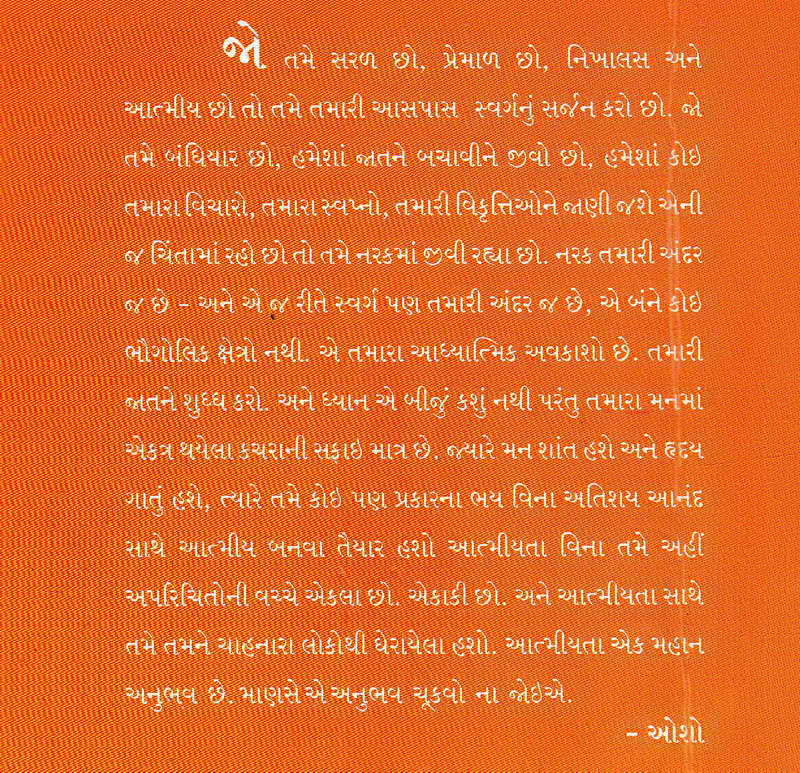 જો તમે સરળ છો, પ્રેમાળ છો, નિખાલસ અને
આત્મીય છો તો તમે તમારી આસપાસ સ્વર્ગનું સર્જન કરો છો. જો
તમે બંધિયાર છો, હમેશાં જાતને બચાવીને જીવો છો, હમેશાં કોઇ
તમારા વિચારો, તમારા સ્વપ્નો, તમારી વિકૃત્તિઓને જાણી જશે એની
જ ચિંતામાં રહો છો તો તમે નરકમાં જીવી રહ્યા છો. નરક તમારી અંદર
જ છે – અને એ જ રીતે સ્વર્ગ પણ તમારી અંદર જ છે, એ બંને કોઇ
ભૌગોલિક ક્ષેત્રો નથી. એ તમારા આધ્યાત્મિક અવકાશો છે. તમારી
જાતને શુધ્ધ કરો. અને ધ્યાન એ બીજું કશું નથી પરંતુ તમારા મનમાં
એકત્ર થયેલા કચરાની સફાઇ માત્ર છે. જ્યારે મન શાંત હશે અને હૃદય
ગાતું હશે, ત્યારે તમે કોઇ પણ પ્રકારના ભય વિના અતિશય આનંદ
સાથે આત્મીય બનવા તૈયાર હશો આત્મીયતા વિના તમે અહીં
અપરિચિતોની વચ્ચે એકલા છો. એકાકી છો. અને આત્મીયતા સાથે
તમે તમને ચાહનારા લોકોથી ઘેરાયેલા હશો. આત્મીયતા એક મહાન
અનુભવ છે. માણસે એ અનુભવ ચૂકવો ના જોઇએ.
– ઓશો